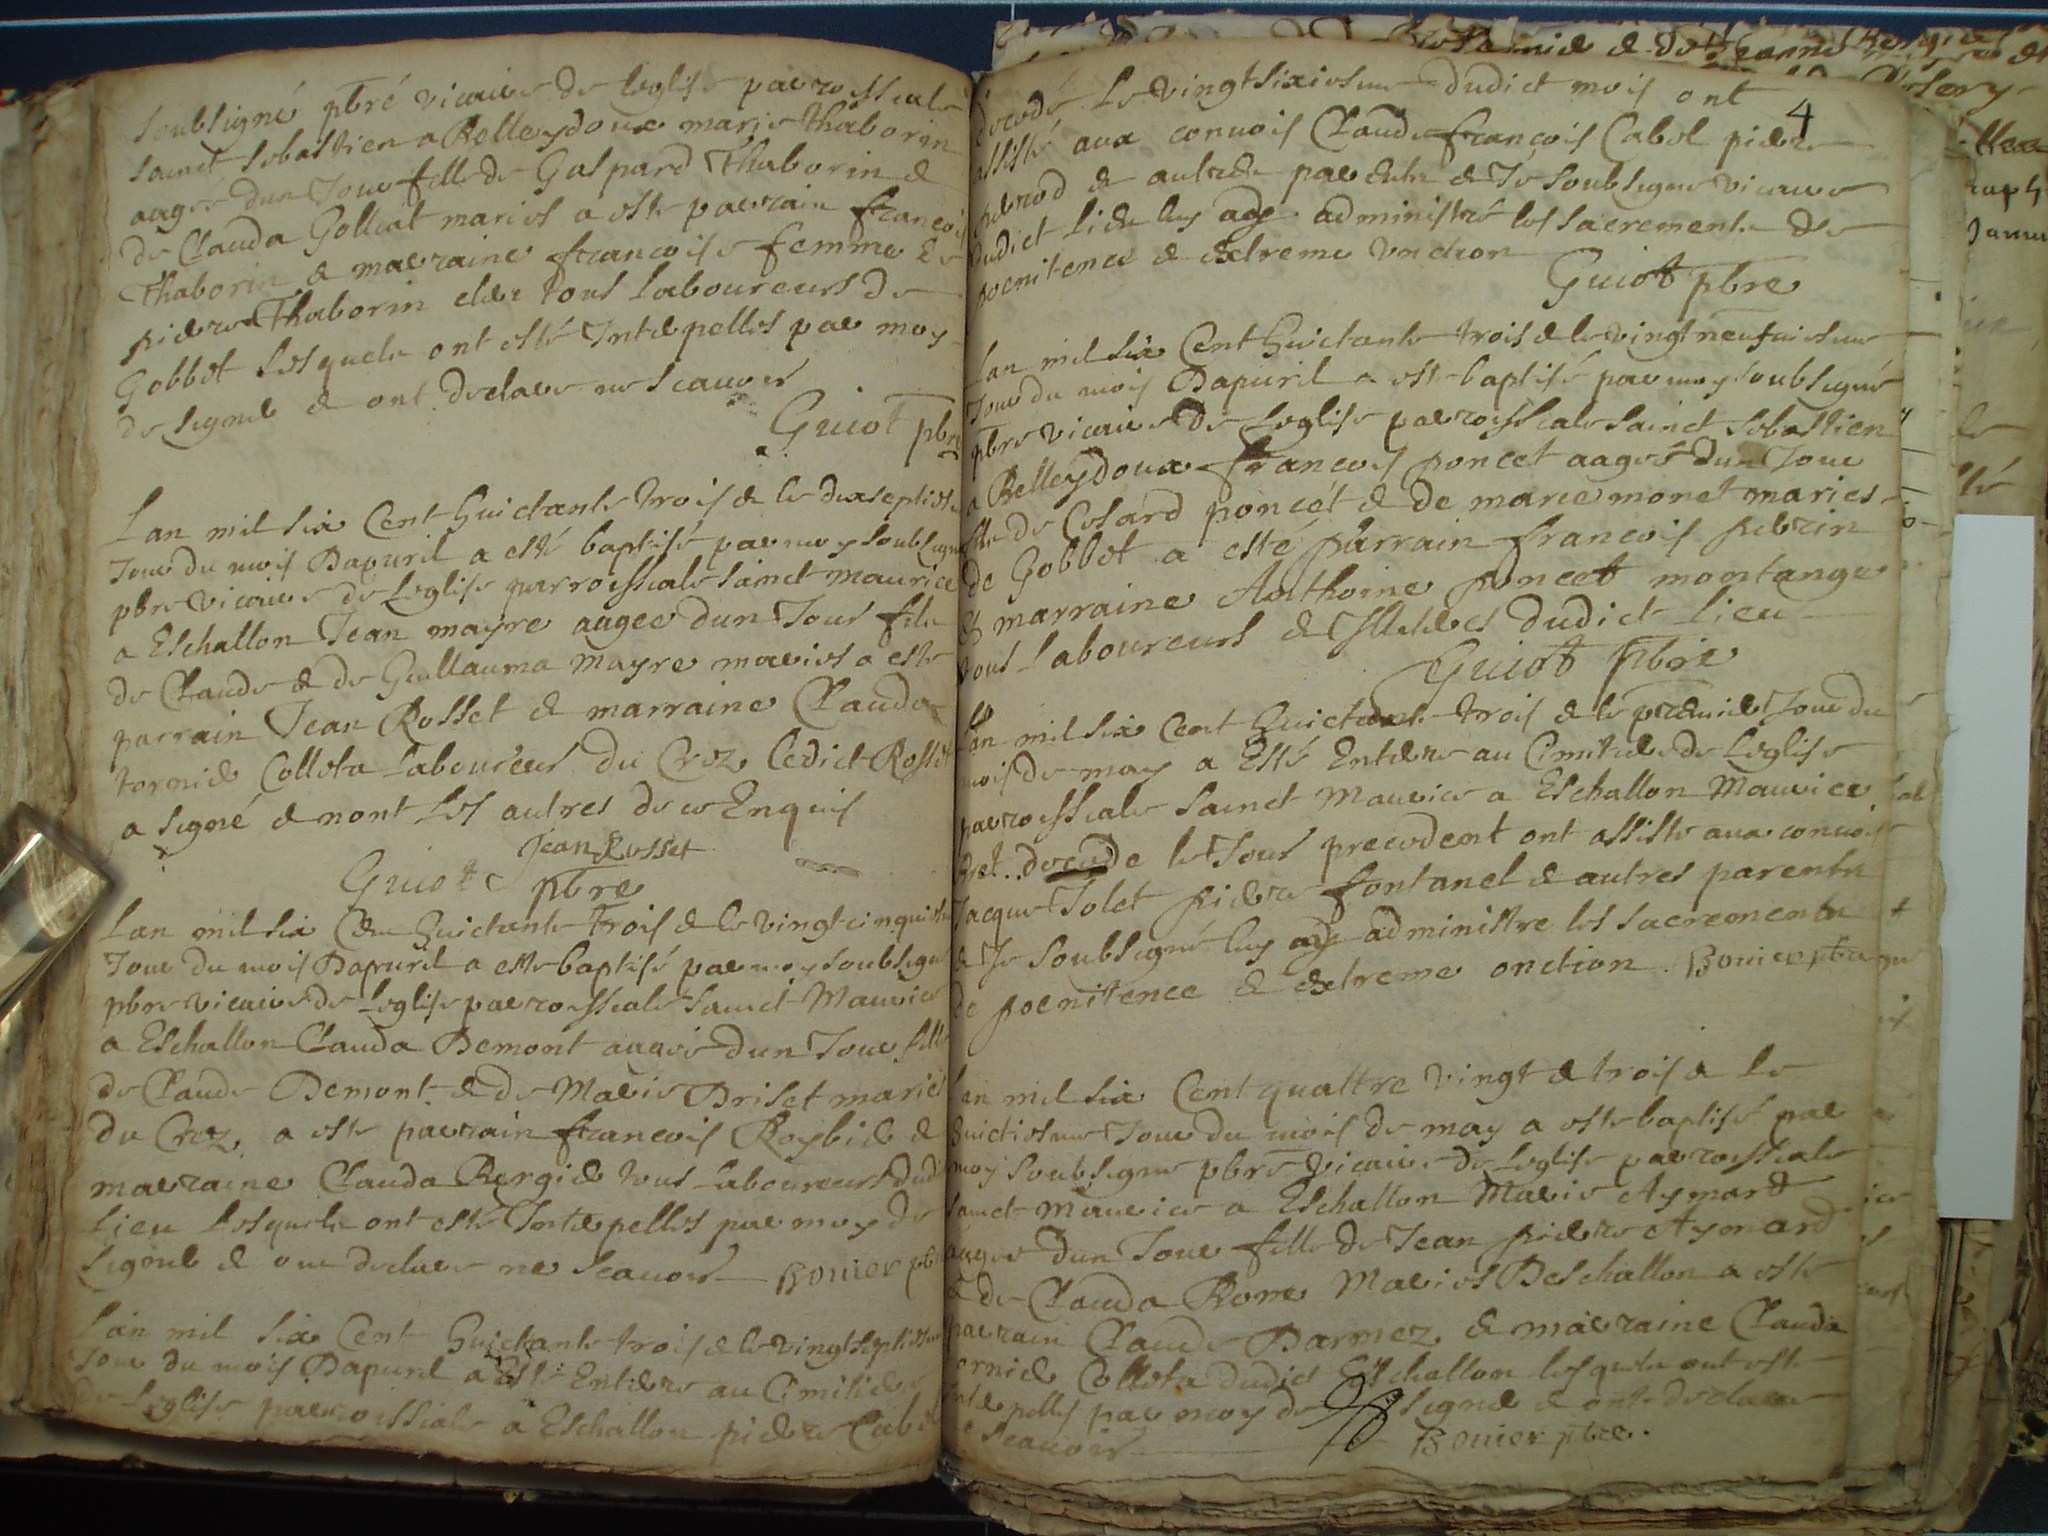 soubsigné pbré vicaire de leglise parrossiale
sainct sebastien a Belleydoux marie thaborin
aagée dun Jour fille de Gaspard Thaborin &
de Clauda Golliat mariés a este parrain francois
Thaborin & marraine francoise femme de
pierre Thaborin clerc tous laboureurs de
Gobbet lesquels ont esté Interpelles par moy
de signer & ont declare ne scauoir
Guiot pbre
Lan mil six Cent huictante trois & le dixseptie
Jour du mois Dapuril a esté baptisé par moy soubsigne
pbre vicaire de Leglise parrossiale sainct maurice
a Eschallon Jean mayre aagee dun Jour fils
de Claude & de Guillauma Mayre maries a este
parrain Jean Rosset & marraine Claude
tornier Colleta laboureurs du Crez Ledict Rosset
a signé & nont les autres de ce Enquis
Jean Rosset
Guiot pbre
Lan mil six Cen huictante trois & le vingt cinquie
Jour du mois Dapuril a este baptisé par moy soubsigne
pbre vicaire de Leglise parrossiale sainct Maurice
a Eschallon Clauda Demont aagee dun Jour fille
de Claude Demont & de Marie Briset mariés
du Crez, a este parrain francois Roybier &
marraine Clauda Bergier tous laboureurs dudi
lieu lesquels ont esté Interpelles par moy de
signer & ont declare ne scauoir Bonier pb
Lan mil six Cent huictante trois & le vingtseptiesme
Jour du mois Dapuril a Esté Enterre au Cimitiere
de leglise parrossiale a Eschallon pierre Cabol
4
decedé le vingtsixiesme dudict mois ont
assisté aux conuois Claude francois Cabol pierre
perrod & autres parents & Je soubsigne vicaire
dudict lieu luy ay administré les sacrements de
poenitence & extreme unction
Guiot pbre
Lan mil six Cent huictante trois & le vingt neufuiesme
Jour du mois Dapuril a este baptisé par moy soubsigné
pbre vicaire de Leglise parrossiale sainct sebastien
a Belleydoux francois poncet aagé dun Jour
fils de Cesard poncet & de marie monet maries
de Gobbet a esté parrain francois perrin
& marraine Anthoine poncet montange
tous laboureurs dudict lieu
Guiot pbre
Lan mil six Cent huictante trois & le premier Jour du
mois de may a Esté Enterre au Cimitiere de Leglise
parrossiale sainct Maurice a Eschallon Maurice
decede le Jour precedent ont assiste aux conuois
Jacque Jolet pierre fontanel & autres parents
& Je soubsigné luy ay administre les sacrements
de poenitence & extreme onction. Bonier pbre
Lan mil six Cent quattre vingt & trois & le
huictiesme Jour du mois de may a este baptisé par
moy soubsigne pbre vicaire de Leglise parrossiale
sainct Maurice a Eschallon Marie Aymard
aagee dun Jour fille de Jean pierre Aymard
& de Clauda Rome Maries Deschallon a este
parrain Claude Darmez & marraine Clauda
tornier Colleta dudict Eschallon lesquels ont este
interpelles par moy de signer & ont declare
ne scauoir Bonier pbre.